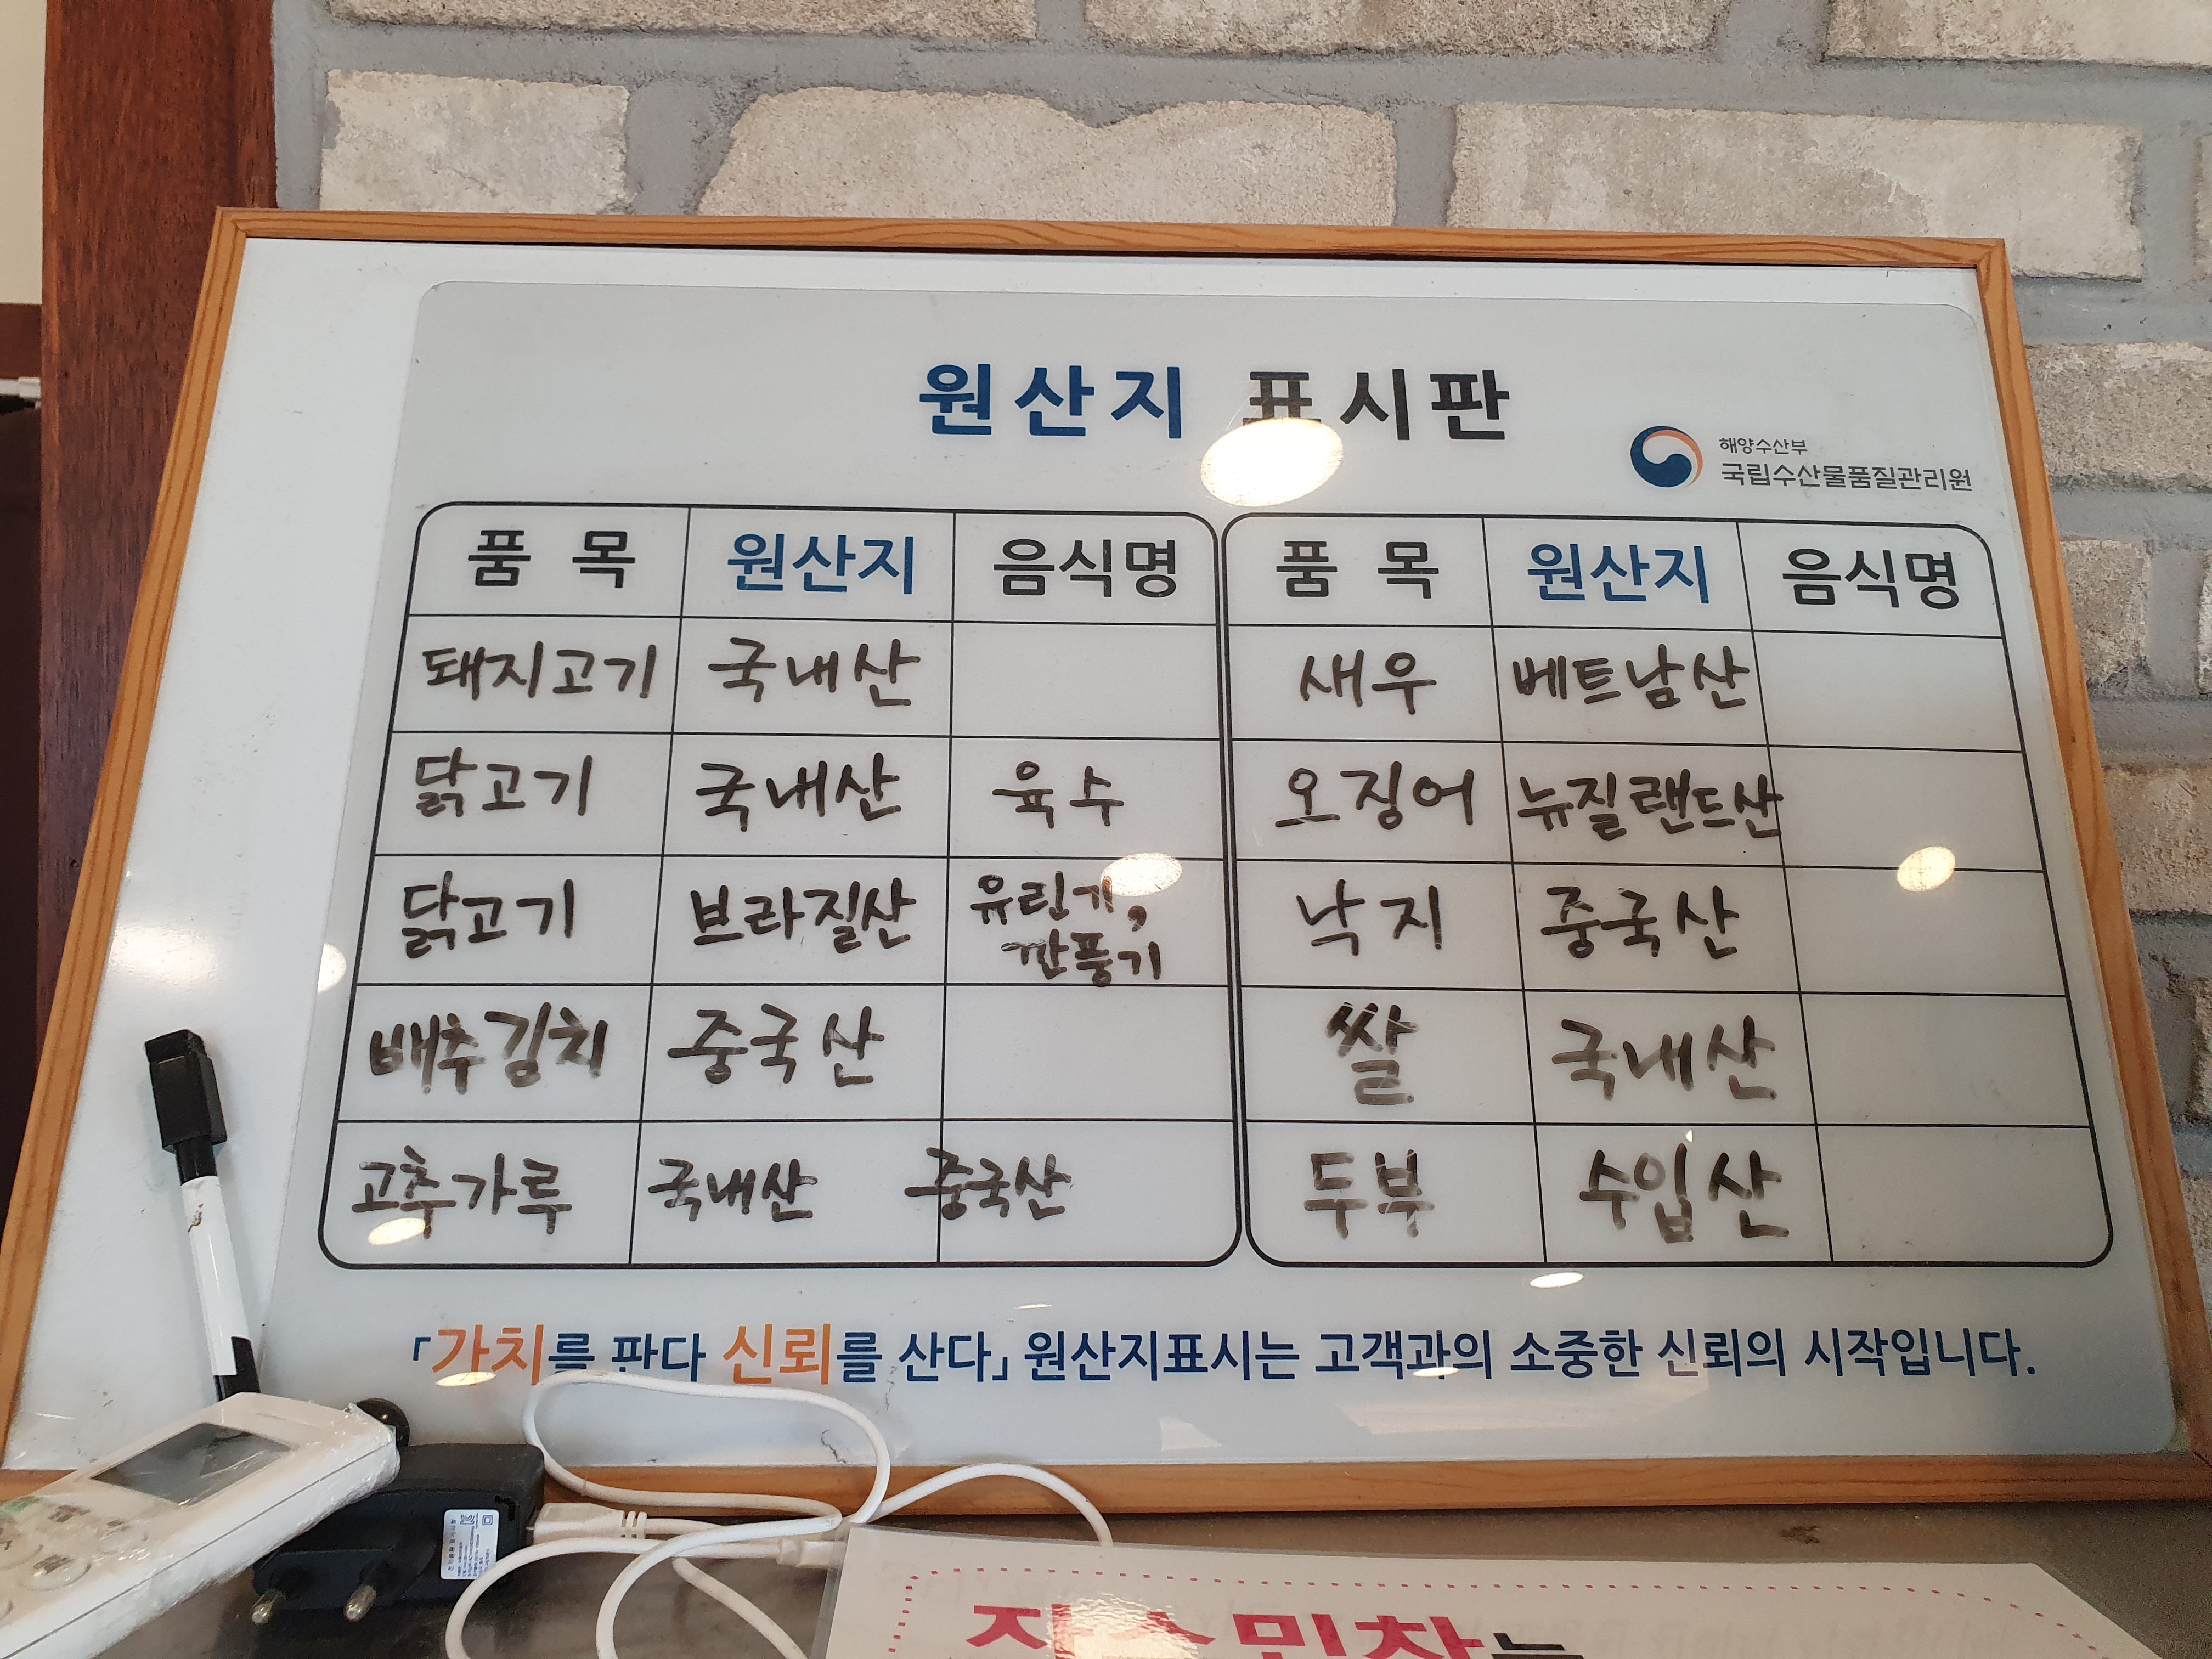 원산지 표시판
해양수산부
국립수산물품질관리원
품 목 원산지 음식명 품 목 원산지 음식명
돼지고기 국내산 새우 베트남산
닭고기 국내산 육수 오징어 뉴질랜드산
닭고기 브라질산 유린기, 깐풍기 낙지 중국산
배추김치 중국산 쌀 국내산
고추가루 국내산 중국산 두부 수입산
「가치를 판다 신뢰를 산다」 원산지표시는 고객과의 소중한 신뢰의 시작입니다.